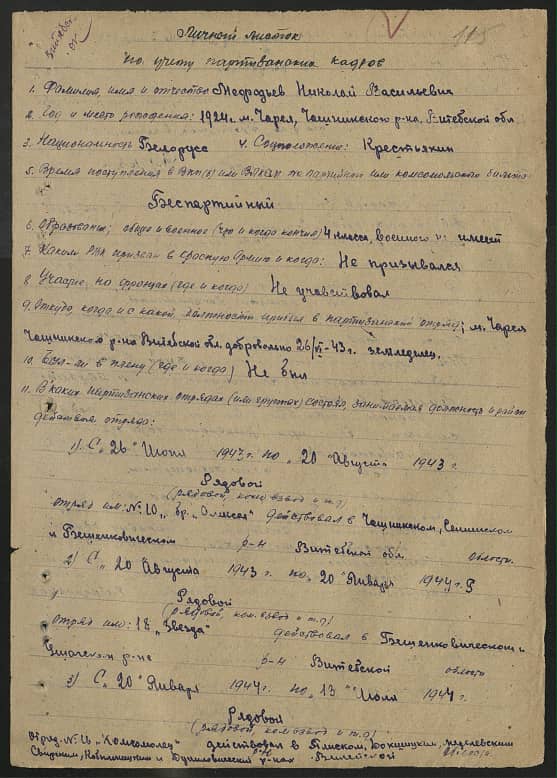 115
Личной листок
по учету партизанских кадров
1. Фамилия, имя и отчество Медродьев Николай Васильевич
2. Год и место рождения: 1924 г. м. Чарея, Чашникского р-на, Витебской обл
3. Национальность Белорусс 4. Соцположение: Крестьянин
5. Время поступления в ВКП(б) или ВЛКСМ № партийного или комсомольского билета
Беспартийный
6. Образование; общее и военное (где и когда кончил) 4 класса, военного не имеет
7. Каким РВК призван в Красную Армию и когда: Не призывался
8. Участие на фронтах (где и когда) Не учавствовал
9. Откуда, когда и с какой должности прибыл в партизанский отряд; м. Чарея
Чашникского р-на Витебской обл. добровольно 26/VI-43 г. земледелец
10. Был-ли в плену (где и когда) Не был
11. В каких партизанских отрядах (или группах) состоял, занимаемая должность и район
действия отряда:
1) С „26" Июня 1943 г. по „20" Август 1943 г.
Рядовой
(рядовой, ком. взвод и т.д)
отряд им: № 10 „бр. „Алексея" действовал в Чашникском, Сеннинском
и Бешенковическом р-н Витебской обл. области
2) С „20" Августа 1943 г. по „20" Января 1944 г.
Рядовой
(рядовой, ком. взвод и т.д)
отряд им: 18 „Звезда" действовал в Бешенковическом и
Ушачском р-не р-н Витебской область
3) С „20" Января 1944 г. по „13" Июля 1944 г.
Рядовой
(рядовой, ком взвод и т.д)
Отряд № 16 „Комсомолец" действовал в Плиском, Докшицким,
Свирским, и р-нах Вилейской области